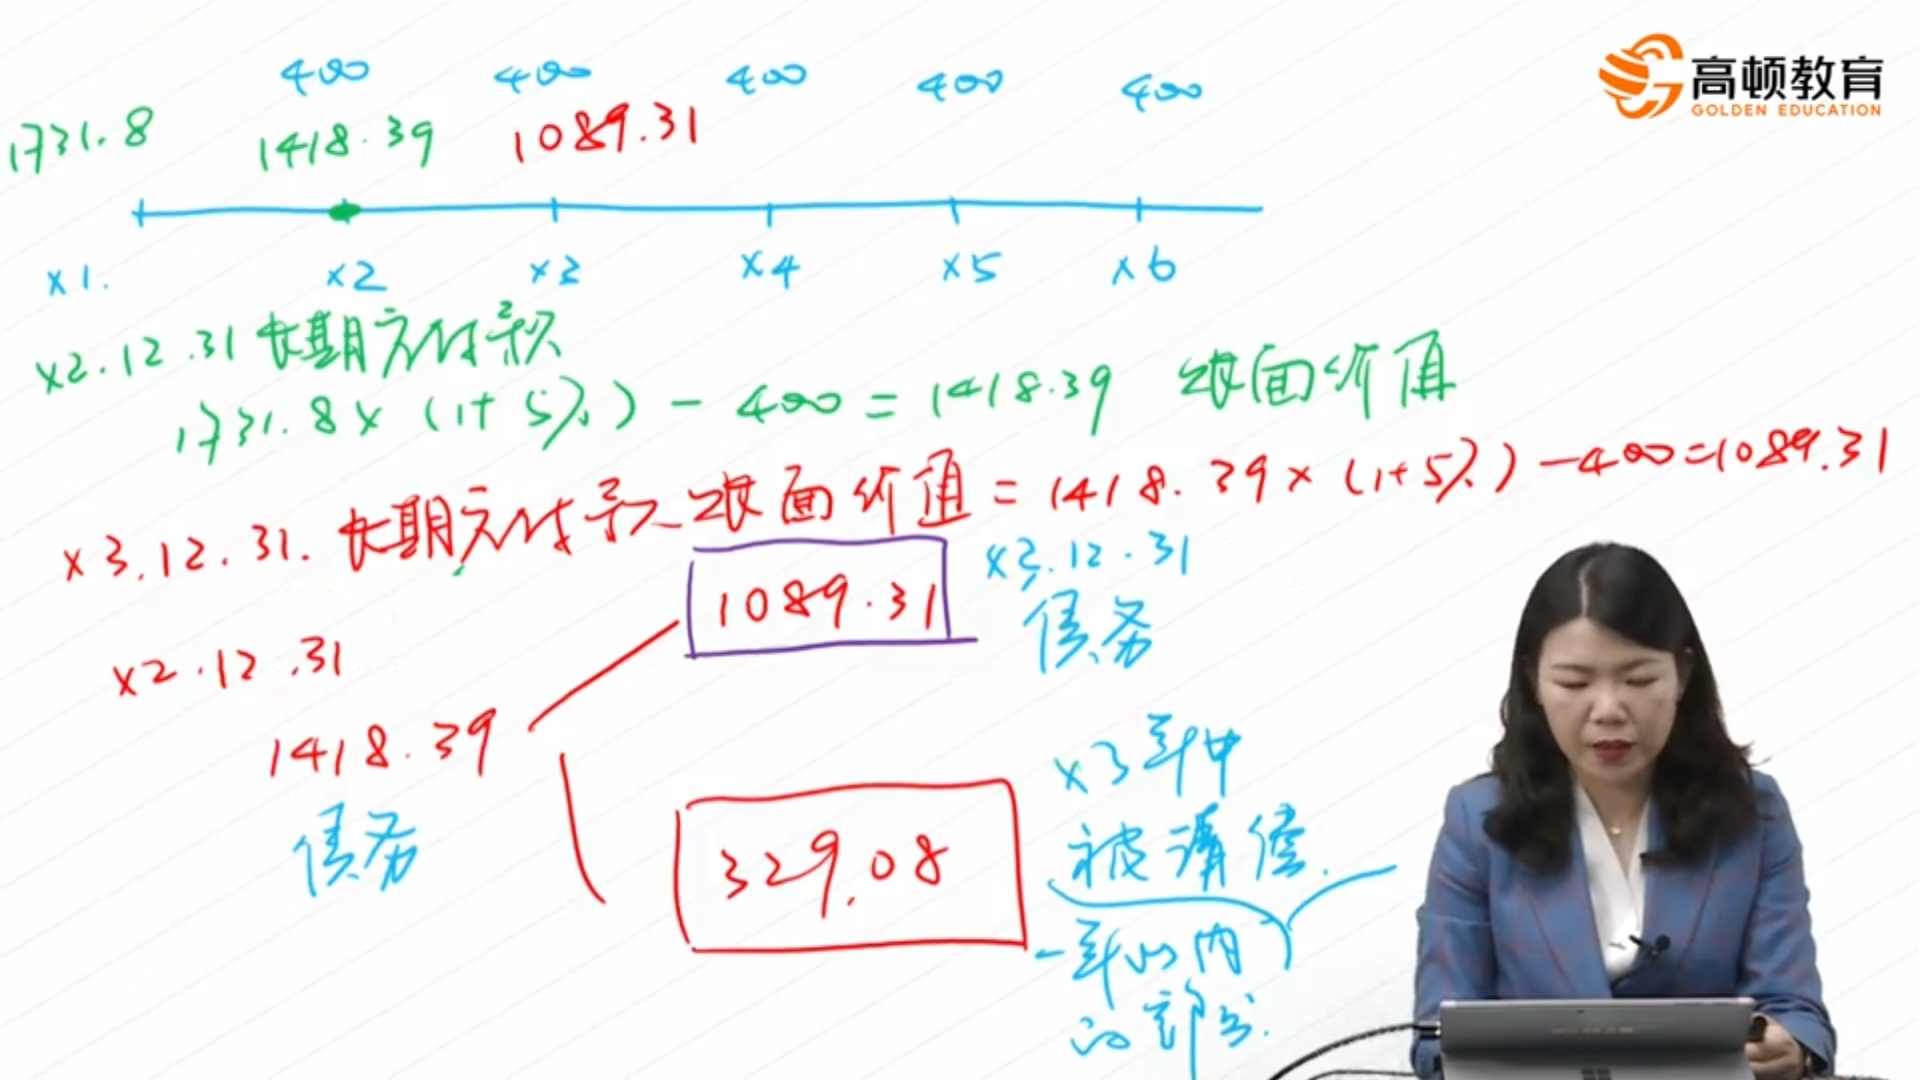 400 400 400 400 400
1731.8 1418.39 1089.31
高顿教育
GOLDEN EDUCATION
x1. x2 x3 x4 x5 x6
x2.12.31 长期应付款
1731.8×(1+5%)-400=1418.39 账面价值
x3.12.31. 长期应付款账面价值=1418.39×(1+5%)-400=1089.31
1089.31
x3.12.31
债务
x2.12.31
1418.39
债务
329.08
x3年中
被清偿.
一年以内
的部分.